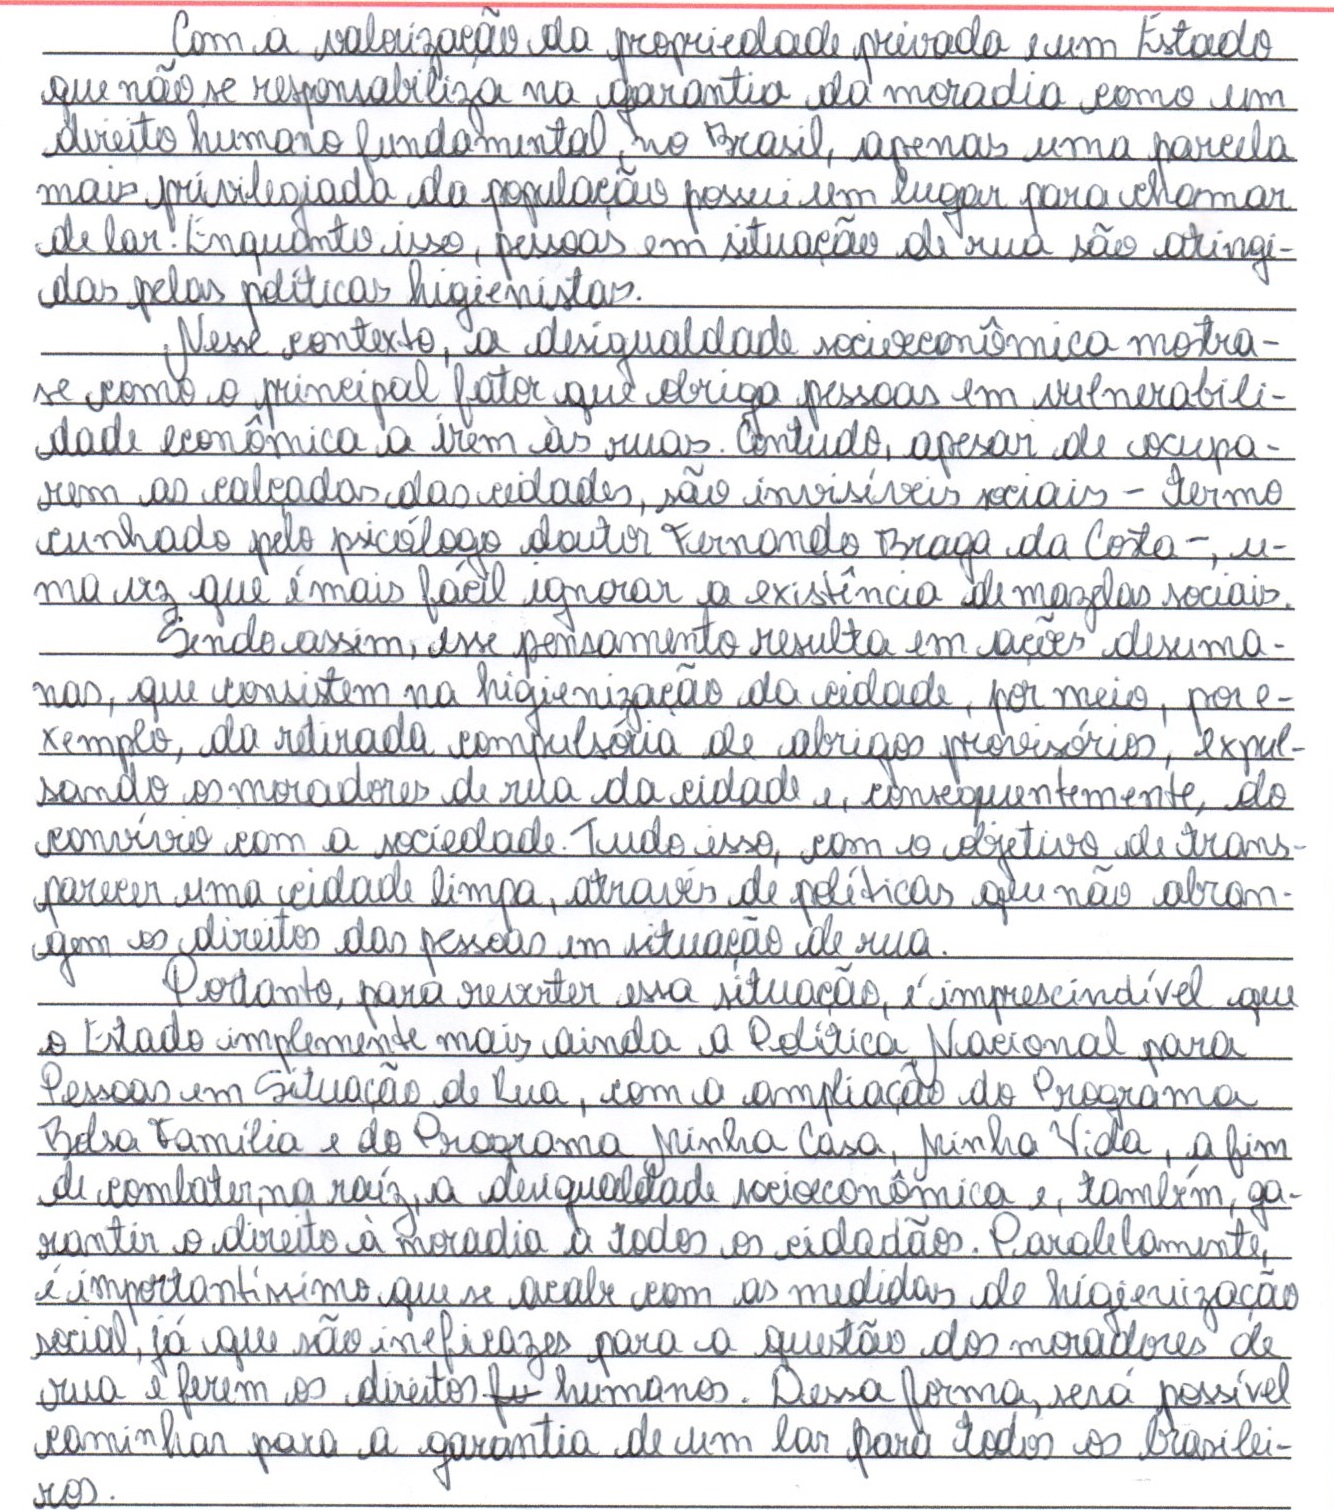 Com a valorização da propriedade privada e um Estado
que não se responsabiliza na garantia da moradia como um
direito humano fundamental, no Brasil, apenas uma parcela
mais privilegiada da população possui um lugar para chamar
de lar. Enquanto isso, pessoas em situação de rua são atingi-
das pelas políticas higienistas.
Nesse contexto, a desigualdade socioeconômica mostra-
se como o principal fator que obriga pessoas em vulnerabili-
dade econômica a irem às ruas. Contudo, apesar de ocupa-
rem as calçadas das cidades, são invisíveis sociais – termo
cunhado pelo psicólogo doutor Fernando Braga da Costa –, u-
ma vez que é mais fácil ignorar a existência de mazelas sociais.
Sendo assim, esse pensamento resulta em ações desuma-
nas, que consistem na higienização da cidade, por meio, por e-
xemplo, da retirada compulsória de abrigos provisórios, expul-
sando os moradores de rua da cidade e, consequentemente, do
convívio com a sociedade. Tudo isso, com o objetivo de trans-
parecer uma cidade limpa, através de políticas que não abran-
gem os direitos das pessoas em situação de rua.
Portanto, para reverter essa situação, é imprescindível que
o Estado implemente mais ainda a Política Nacional para
Pessoas em Situação de Rua, com a ampliação do Programa
Bolsa Família e do Programa Minha Casa, Minha Vida, a fim
de combater, na raíz, a desigualdade socioeconômica e, também, ga-
rantir o direito à moradia a todos os cidadãos. Paralelamente,
é importantíssimo que se acabe com as medidas de higienização
social, já que são ineficazes para a questão dos moradores de
rua e ferem os direitos fu humanos. Dessa forma, será possível
caminhar para a garantia de um lar para todos os brasilei-
ros.